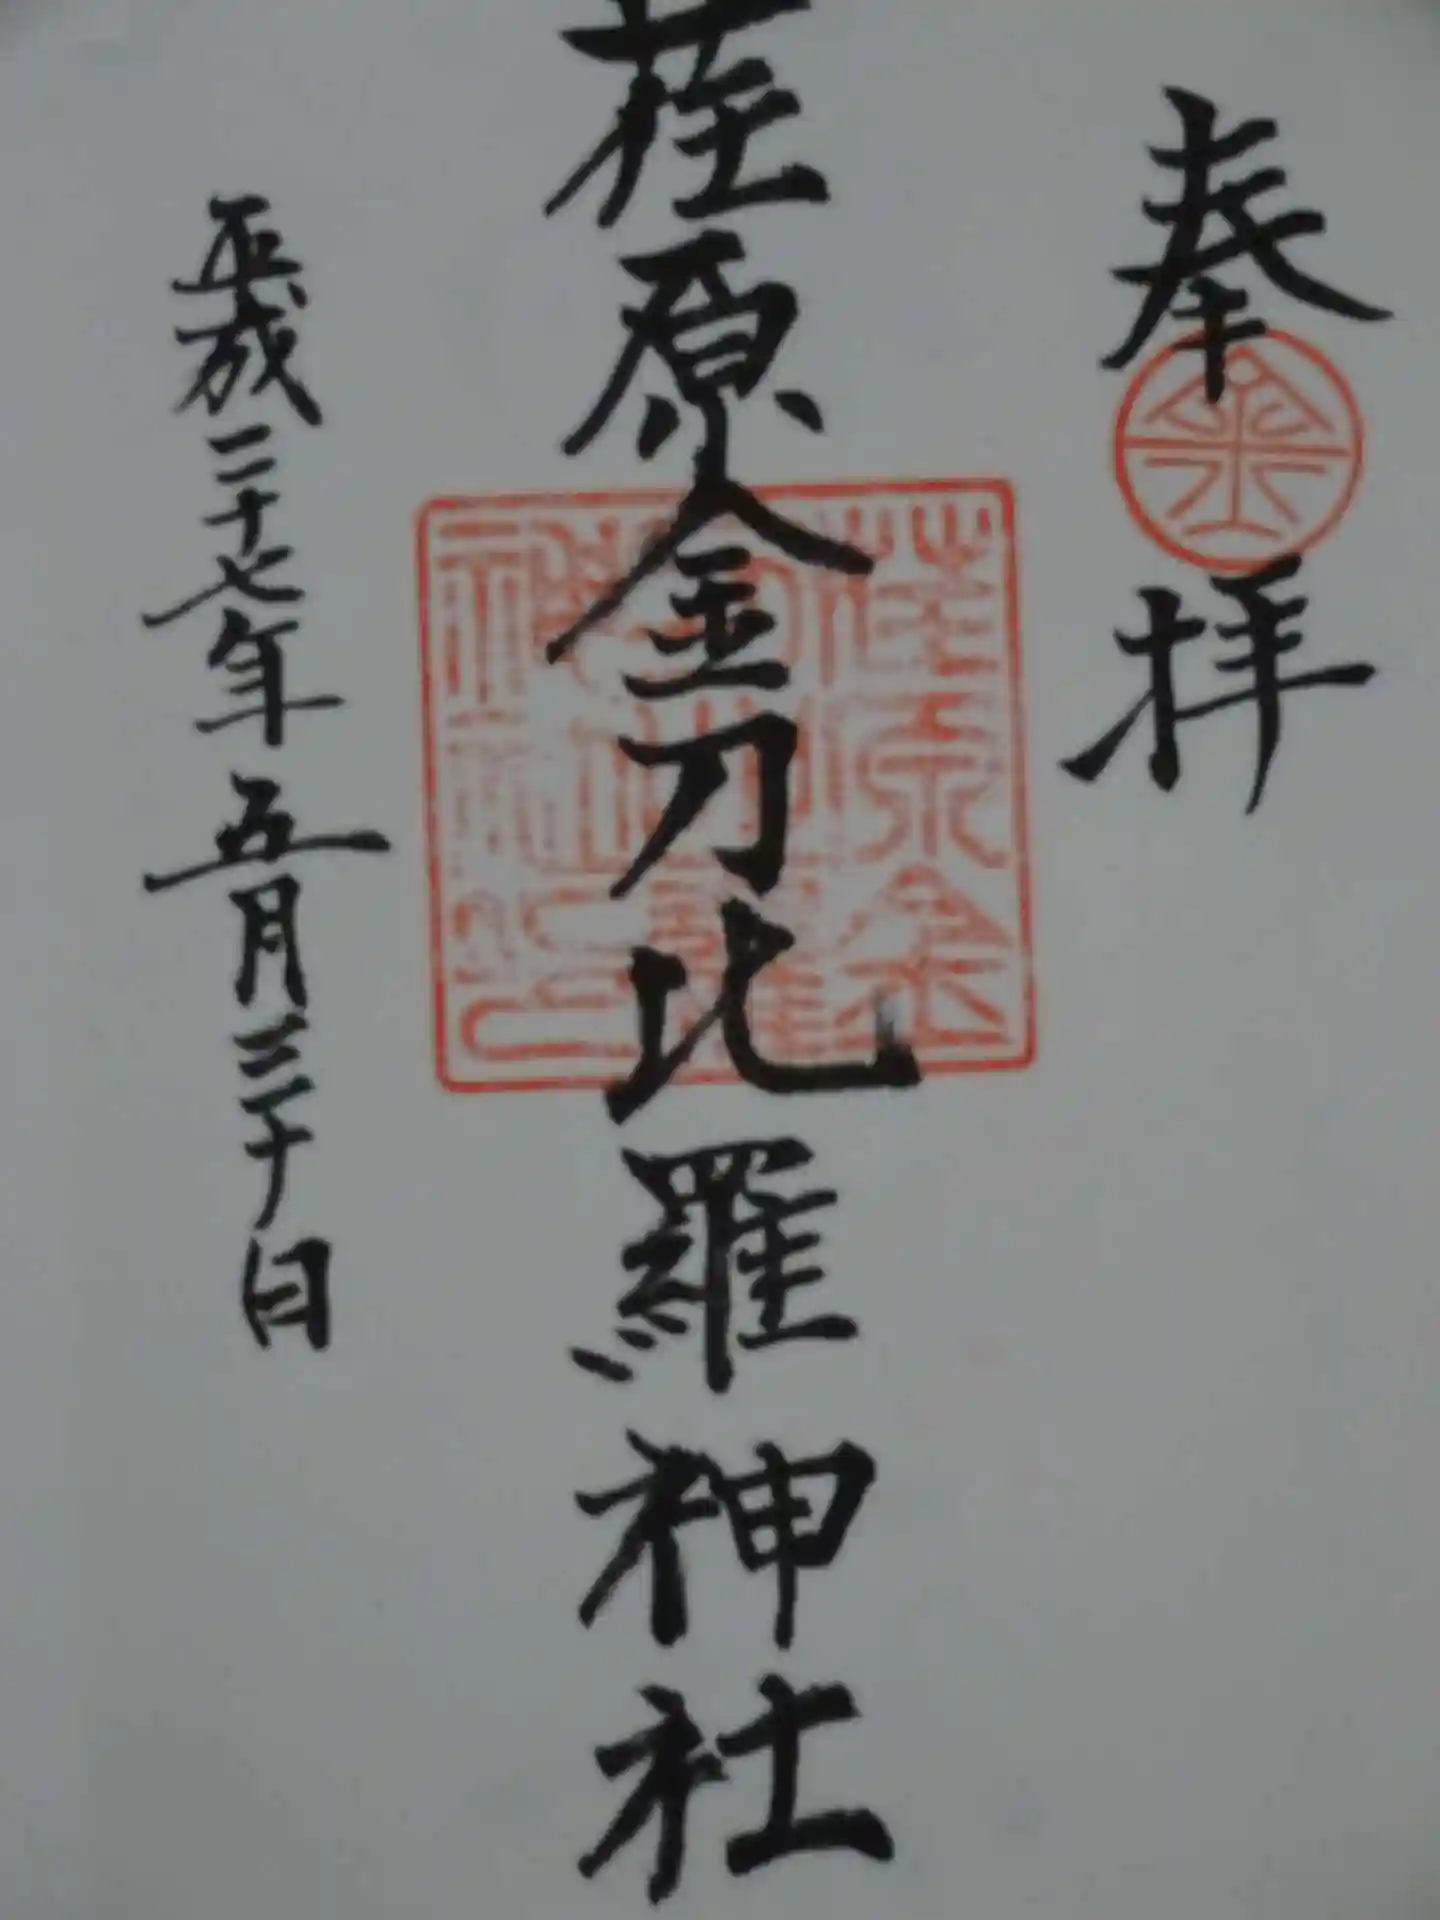 奉拝
荏原金刀比羅神社
平成二十七年五月三十日